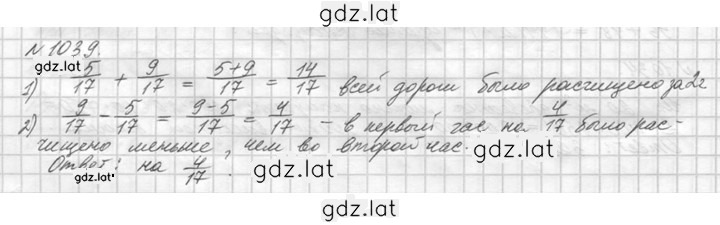 gdz.lat
№ 1039.
gdz.lat
1) 5/17 + 9/17 = 5+9/17 = 14/17 всей дороги было расчищено за 2 ч
2) 9/17 - 5/17 = 9-5/17 = 4/17 - в первый час на 4/17 было рас-
чищено меньше, чем во второй час.
Ответ: на 4/17.
gdz.lat
gdz.lat
gdz.lat